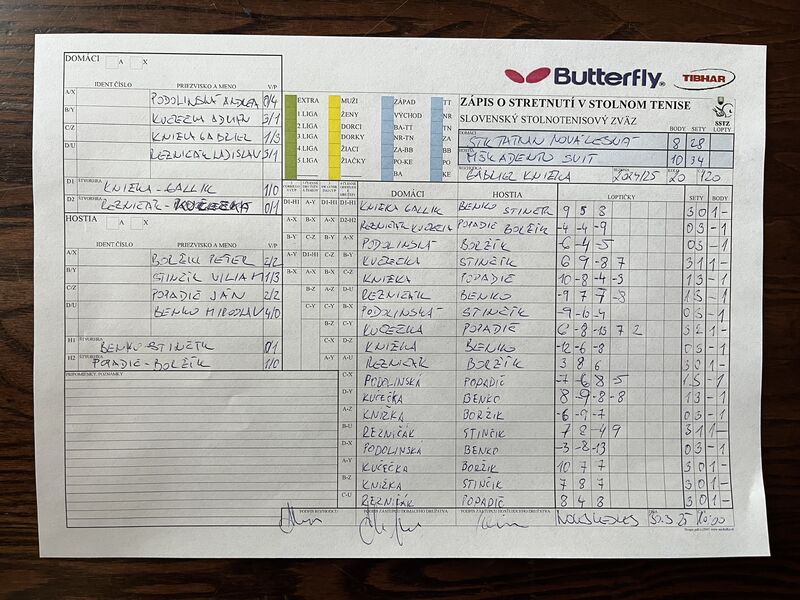 DOMÁCI A X
IDENT ČÍSLO PRIEZVISKO A MENO V/P
A/X PODOLINSKÁ ANDREA 0/4
B/Y KUČEČKA ADRIÁN 3/1
C/Z KNIŽKA GABRIEL 1/3
D/U REZNIČÁK LADISLAV 3/1
D1 ŠTVORHRA KNIŽKA - GALLIK 1/0
D2 REZNIČÁK - KUČEČKA 0/1
HOSTIA A X
IDENT ČÍSLO PRIEZVISKO A MENO V/P
A/X BORŽÍK PETER 2/2
B/Y STINČÍK VILIAM 1/3
C/Z POPADIČ JÁN 2/2
D/U BENKO MIROSLAV 4/0
H1 ŠTVORHRA BENKO STINČÍK 0/1
H2 POPADIČ - BORŽÍK 1/0
PRIPOMIENKY, POZNÁMKY
EXTRA
1 LIGA
2 LIGA
3 LIGA
4 LIGA
5 LIGA
MUŽI
ŽENY
DORCI
DORKY
ŽIACI
ŽIAČKY
ZÁPAD TT
VÝCHOD NR
BA-TT TN
NR-TN ZA
ZA-BB BB
PO-KE PO
BA KE
Butterfly
TIBHAR
ZÁPIS O STRETNUTÍ V STOLNOM TENISE
SLOVENSKÝ STOLNOTENISOVÝ ZVÄZ
SSTZ
DOMÁCI BODY SETY LOPTY
STK TATRAN NOVÁ LESNÁ 8 28
HOSTIA
MŠK ADENTO SVIT 10 34
GABRIEL KNIŽKA 2024/25 20 120
DOMÁCI HOSTIA LOPTIČKY SETY BODY
KNIŽKA GALLIK BENKO STINČÍK 9 5 8 3 0 1 -
REZNIČÁK KUČEČKA POPADIČ BORŽÍK -4 -4 -9 0 3 - 1
PODOLINSKÁ BORŽÍK -6 -4 -5 0 3 - 1
KUČEČKA STINČÍK 6 9 -8 7 3 1 1 -
KNIŽKA POPADIČ 10 -8 -4 -3 1 3 - 1
REZNIČÁK BENKO -9 7 -7 -8 1 3 - 1
PODOLINSKÁ STINČÍK -9 -10 -4 0 3 - 1
KUČEČKA POPADIČ 6 -8 -13 7 2 3 2 1 -
KNIŽKA BENKO -12 -6 -8 0 3 - 1
REZNIČÁK BORŽÍK 3 8 6 3 0 1 -
C-X PODOLINSKÁ POPADIČ -7 -6 8 -5 1 3 - 1
D-Y KUČEČKA BENKO 8 -9 -8 -8 1 3 - 1
A-Z KNIŽKA BORŽIK -6 -9 -7 0 3 - 1
B-U REZNIČÁK STINČIK 7 8 -4 9 3 1 1 -
D-X PODOLINSKÁ BENKO -3 -8 -13 0 3 - 1
A-Y KUČEČKA BORŽIK 10 7 7 3 0 1 -
B-Z KNIŽKA STINČIK 7 8 7 3 0 1 -
C-U REZNIČÁK POPADIČ 8 4 8 3 0 1 -
PODPIS ROZHODCU PODPIS ZÁSTUPCU DOMÁCEHO DRUŽSTVA PODPIS ZÁSTUPCU HOSŤUJÚCEHO DRUŽSTVA 30.3.25 10:00